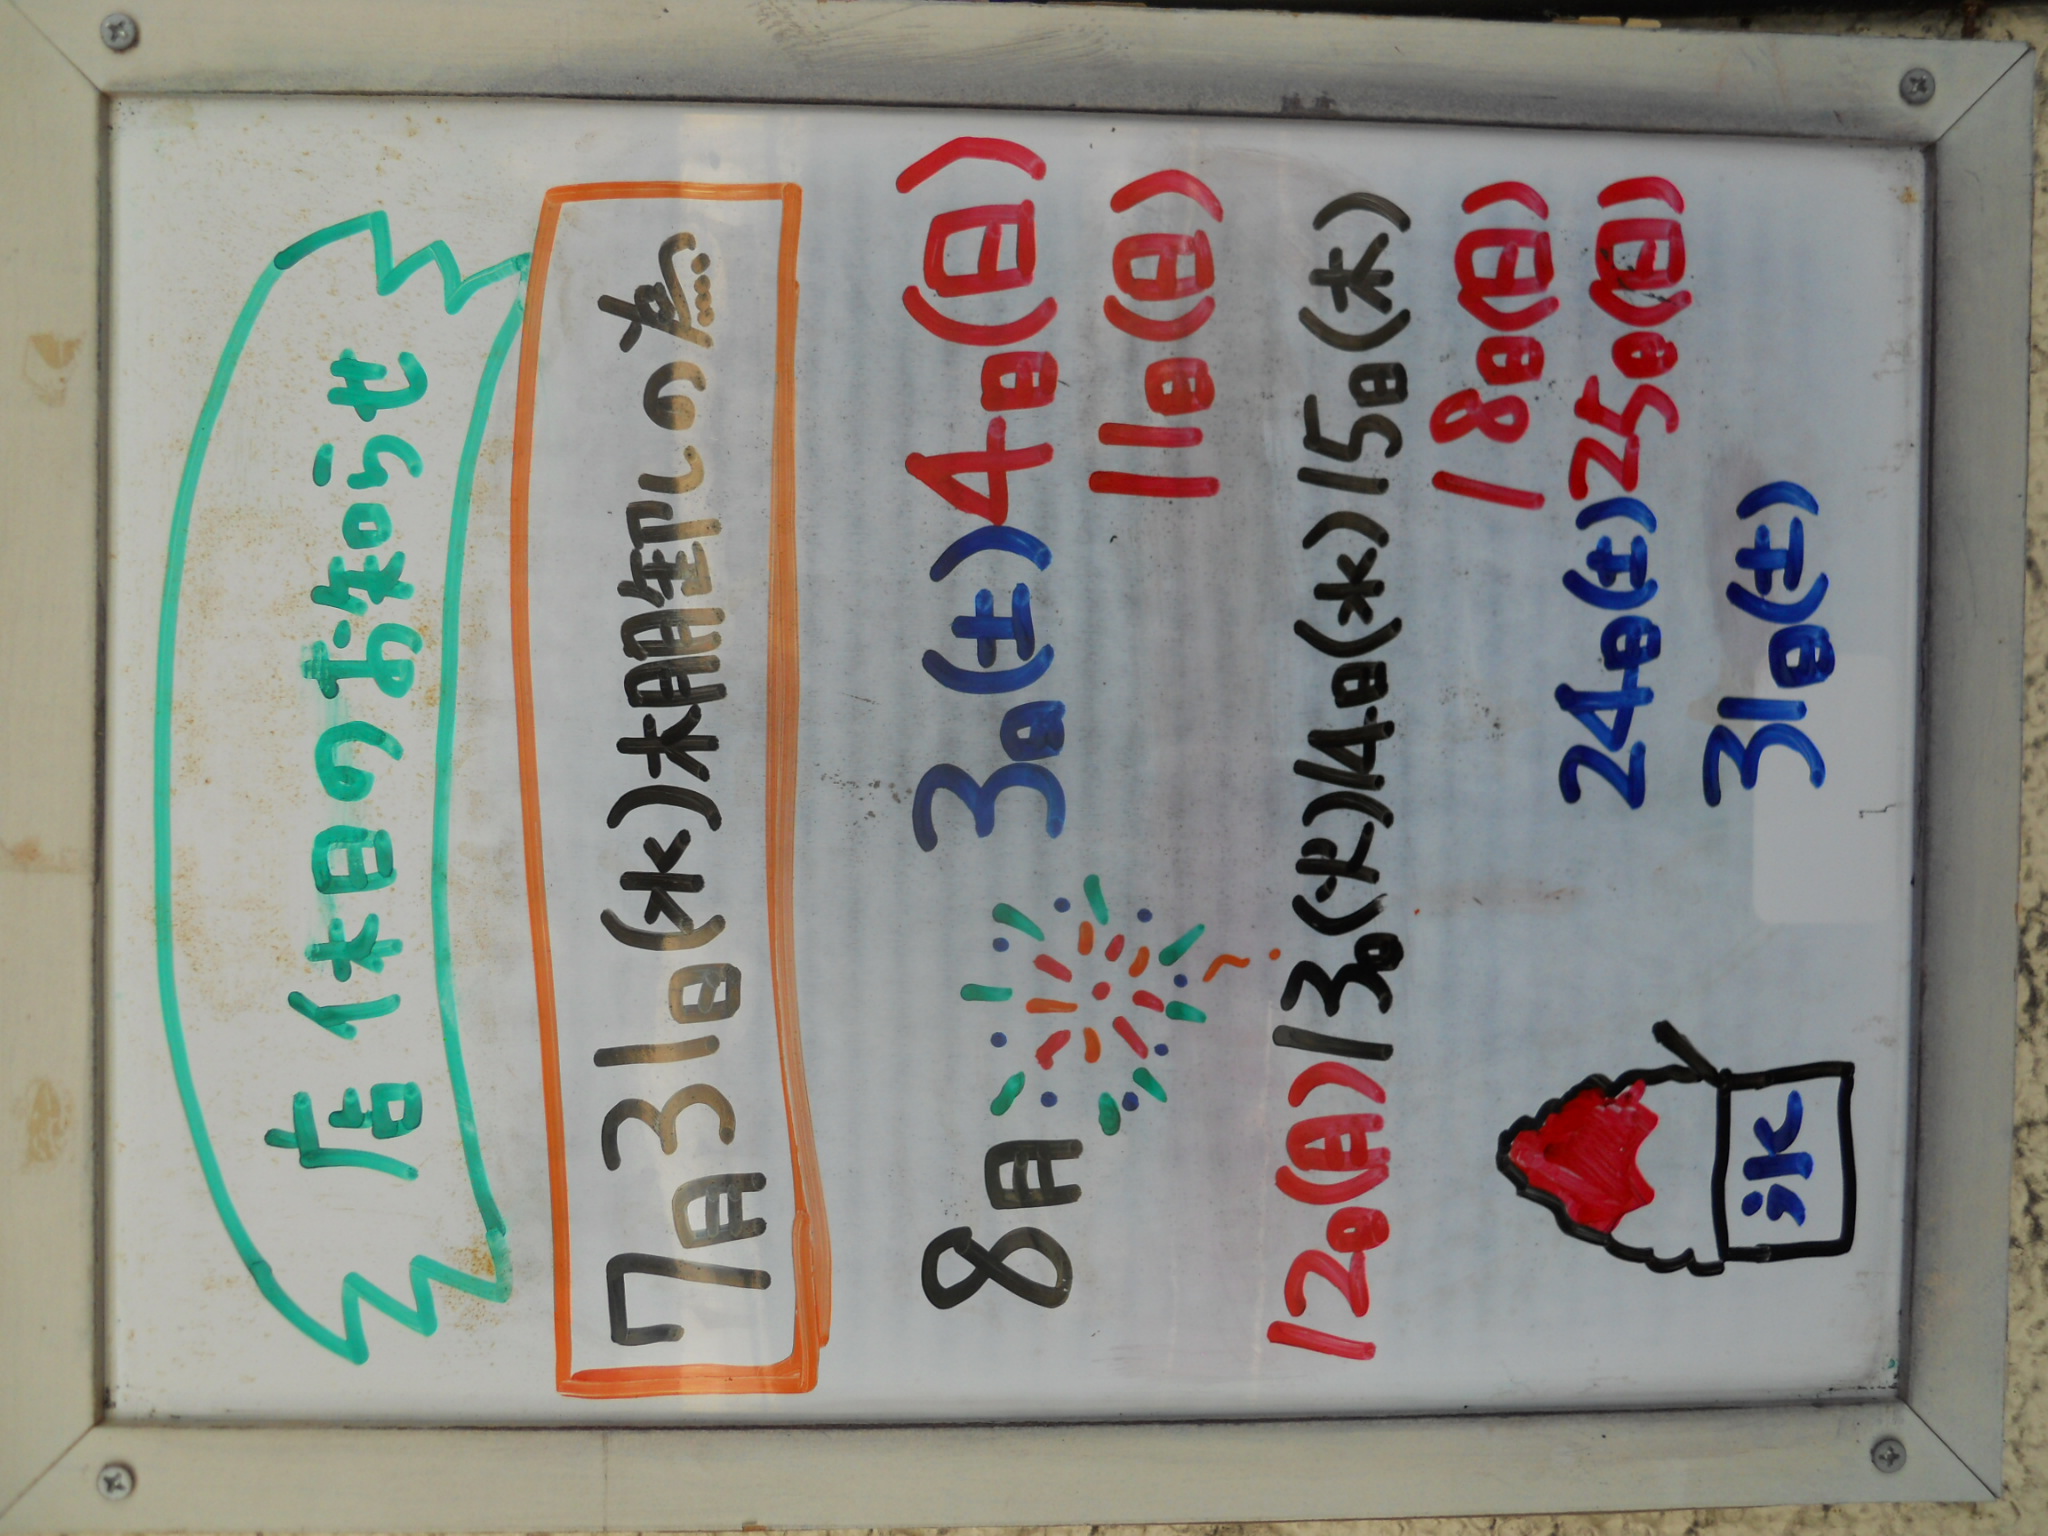 店休日のお知らせ
7月31日(水)棚卸しの為
8月 3日(土)4日(日)
11日(日)
12日(月)13日(火)14日(水)15日(木)
18日(日)
24日(土)25日(日)
31日(土)
氷